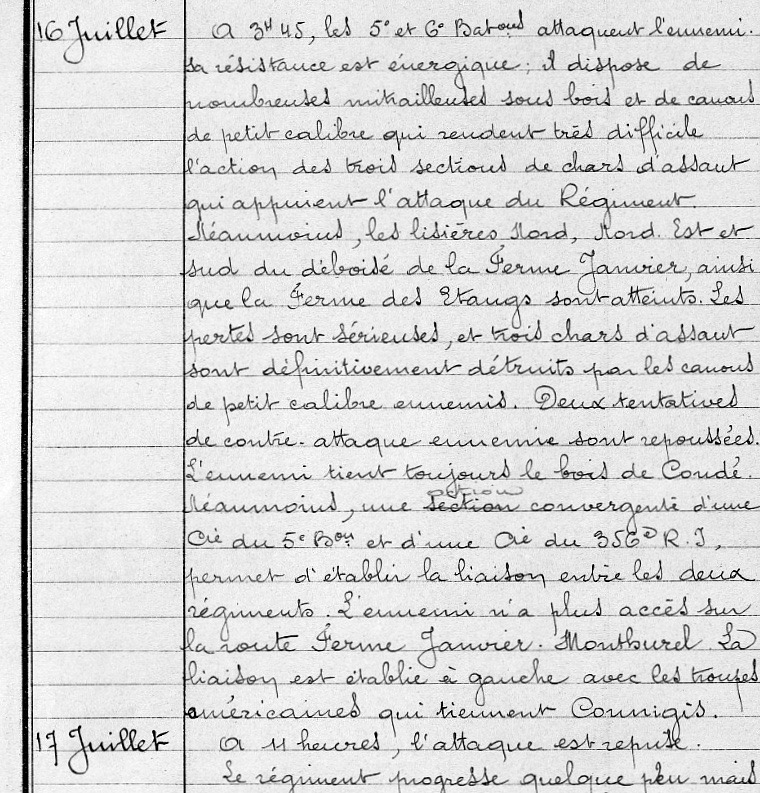 16 Juillet A 3H45, les 5e et 6e Batons attaquent l'ennemi.
sa résistance est énergique ; il dispose de
nombreuses mitrailleuses sous bois et de canons
de petit calibre qui rendent très difficile
l'action des trois sections de chars d'assaut
qui appuient l'attaque du Régiment
Néanmoins, les lisières Nord, Nord. Est et
sud du déboisé de la Ferme Janvier, ainsi
que la Ferme des Etangs sont atteints. Les
pertes sont sérieuses, et trois chars d'assaut
sont définitivement détruits par les canons
de petit calibre ennemis. Deux tentatives
de contre-attaque ennemie sont repoussées.
L'ennemi tient toujours le bois de Condé.
action
Néanmoins, une section convergente d'une
Cie du 5e Bon et d'une Cie du 356e R.I,
permet d'établir la liaison entre les deux
régiments. L'ennemi n'a plus accès sur
la route Ferme Janvier. Monthurel La
liaison est établie à gauche avec les troupes
américaines qui tiennent Connigis.
17 Juillet A 11 heures, l'attaque est reprise.
Le régiment progresse quelque peu mais